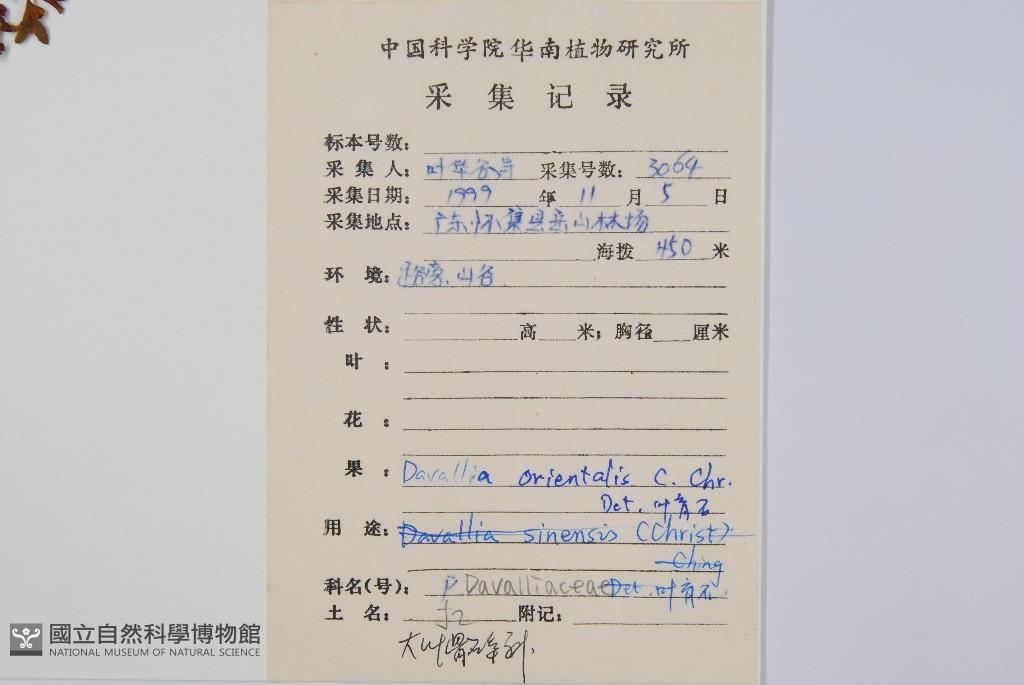 中国科学院华南植物研究所
采集记录
标本号数：
采集人：叶华谷等 采集号数：3064
采集日期：1999年11月5日
采集地点：广东怀集县 山林场
海拨 450 米
环境：路旁、山谷
性状： 高 米；胸径 厘米
叶：
花：
果：Davallia orientalis C. Chr.
Det. 叶育石
用途：Davallia sinensis (Christ)
Ching
科名(号)：P Davalliaceae Det. 叶育石
土名： 附记：
大叶骨碎补
國立自然科學博物館
NATIONAL MUSEUM OF NATURAL SCIENCE